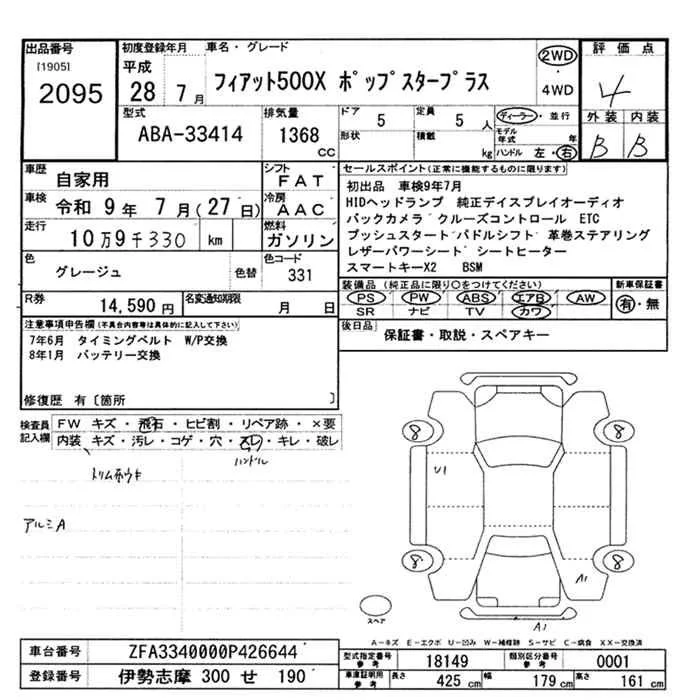 出品番号
[1905]
2095
初度登録年月
平成
28 7月
車名・グレード
フィアット500X ポップスタープラス
2WD
4WD
評価点
4
外装 内装
B B
型式
ABA-33414
排気量
1368
CC
ドア
5
定員
5 人
形状
積載
kg
ディーラー・並行
モデル年式 年
ハンドル 左・右
車歴
自家用
シフト
FAT
車検
令和 9年 7月(27日)
冷房
AAC
走行
10万9千330 km
燃料
ガソリン
色
グレージュ
色替
色コード
331
R券
14,590 円
名変通知期限
月 日
セールスポイント(正常に機能するものに限ります)
初出品 車検9年7月
HIDヘッドランプ 純正デイスプレイオーディオ
バックカメラ クルーズコントロール ETC
プッシュスタート パドルシフト 革巻ステアリング
レザーパワーシート シートヒーター
スマートキーX2 BSM
装備品(純正品に限り○をつけてください)
PS PW ABS エアB AW
SR ナビ TV カワ
新車保証書
有・無
後日品
保証書・取説・スペアキー
注意事項申告欄(不具合内容等は具体的に記入して下さい)
7年6月 タイミングベルト W/P交換
8年1月 バッテリー交換
修復歴 有〔箇所 〕
検査員記入欄
FW キズ・飛石・ヒビ割・リペア跡・×要
内装 キズ・汚レ・コゲ・穴・スレ・キレ・破レ
ハンドル
トリムホウキ
アルミA
8
8
U1
8
8
A1
スペア
A1
A-キズ E-エクボ U-凹み W-補修跡 S-サビ C-腐食 XX-交換済
車台番号
ZFA3340000P426644
登録番号
伊勢志摩 300 せ 190
型式指定番号
参考
18149
類別区分番号
参考
0001
車庫証明用
参考
長さ
425 cm
幅
179 cm
高さ
161 cm